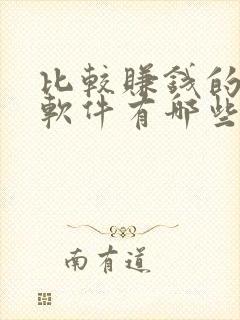 比較賺錢的
軟件有哪些
南有道